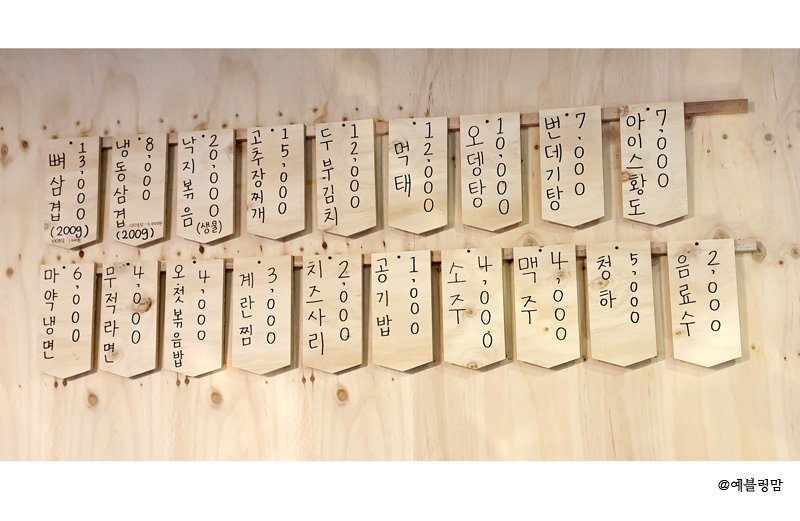 뼈삼겹 (200g) 13,000
냉동삼겹 (200g) 8,000
낙지볶음 (생물) 20,000
고추장찌개 15,000
두부김치 12,000
먹태 12,000
오뎅탕 10,000
번데기탕 7,000
아이스황도 7,000
마약냉면 6,000
무적라면 4,000
오젓볶음밥 4,000
계란찜 3,000
치즈사리 2,000
공기밥 1,000
소주 4,000
맥주 4,000
청하 5,000
음료수 2,000
@예블링맘